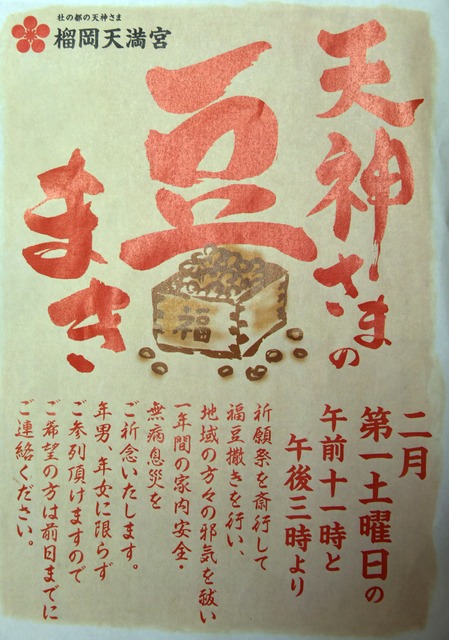 杜の都の天神さま
榴岡天満宮
天神さまの
豆
まき
二月
第一土曜日の
午前十一時と
午後三時より
祈願祭を斎行して
福豆撒きを行い、
地域の方々の邪気を祓い
一年間の家内安全・
無病息災を
ご祈念いたします。
年男、年女に限らず
ご参列頂けますので
ご希望の方は前日までに
ご連絡ください。
福